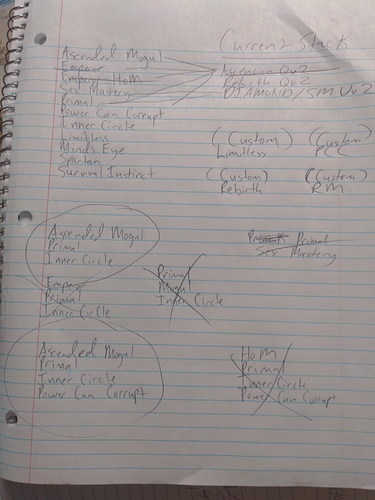 Current Stack
Ascended Mogul
Emperor
Emperor HoM
Sex Mastery
Primal
Power Can Corrupt
Inner Circle
Limitless
Minds Eye
Spartan
Survival Instinct
Ascension Qv2
Rebirth Qv2
DIAMOND/SM Uv2
(Custom)
Limitless
(Custom)
PCC
(Custom)
Rebirth
(Custom)
RM
Ascended Mogul
Primal
Inner Circle
Primal
Sex Mastery
Emperor
Primal
Inner Circle
Primal
Mogul
Inner Circle
Ascended Mogul
Primal
Inner Circle
Power Can Corrupt
HoM
Primal
Inner Circle
Power Can Corrupt